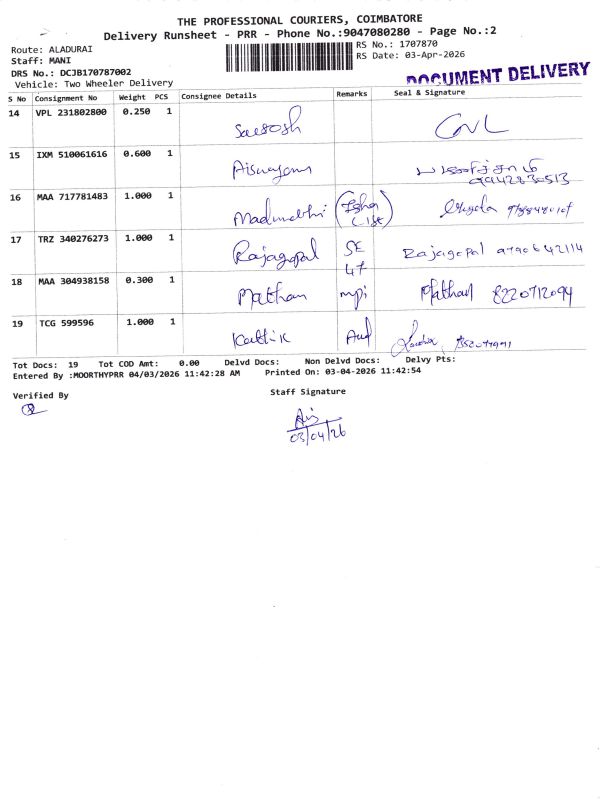 THE PROFESSIONAL COURIERS, COIMBATORE
Delivery Runsheet - PRR - Phone No.:9047080280 - Page No.:2
Route: ALADURAI
Staff: MANI
DRS No.: DCJB170787002
Vehicle: Two Wheeler Delivery
RS No.: 1707870
RS Date: 03-Apr-2026
DOCUMENT DELIVERY
S No Consignment No Weight PCS Consignee Details Remarks Seal & Signature
14 VPL 231802800 0.250 1
15 IXM 510061616 0.600 1
16 MAA 717781483 1.000 1
17 TRZ 340276273 1.000 1 Rajagopal SE 47 Rajagopal
18 MAA 304938158 0.300 1 Mathan mpi Mathan 8220712094
19 TCG 599596 1.000 1 Karthik
Tot Docs: 19 Tot COD Amt: 0.00 Delvd Docs: Non Delvd Docs: Delvy Pts:
Entered By :MOORTHYPRR 04/03/2026 11:42:28 AM Printed On: 03-04-2026 11:42:54
Verified By
Staff Signature
03/04/26